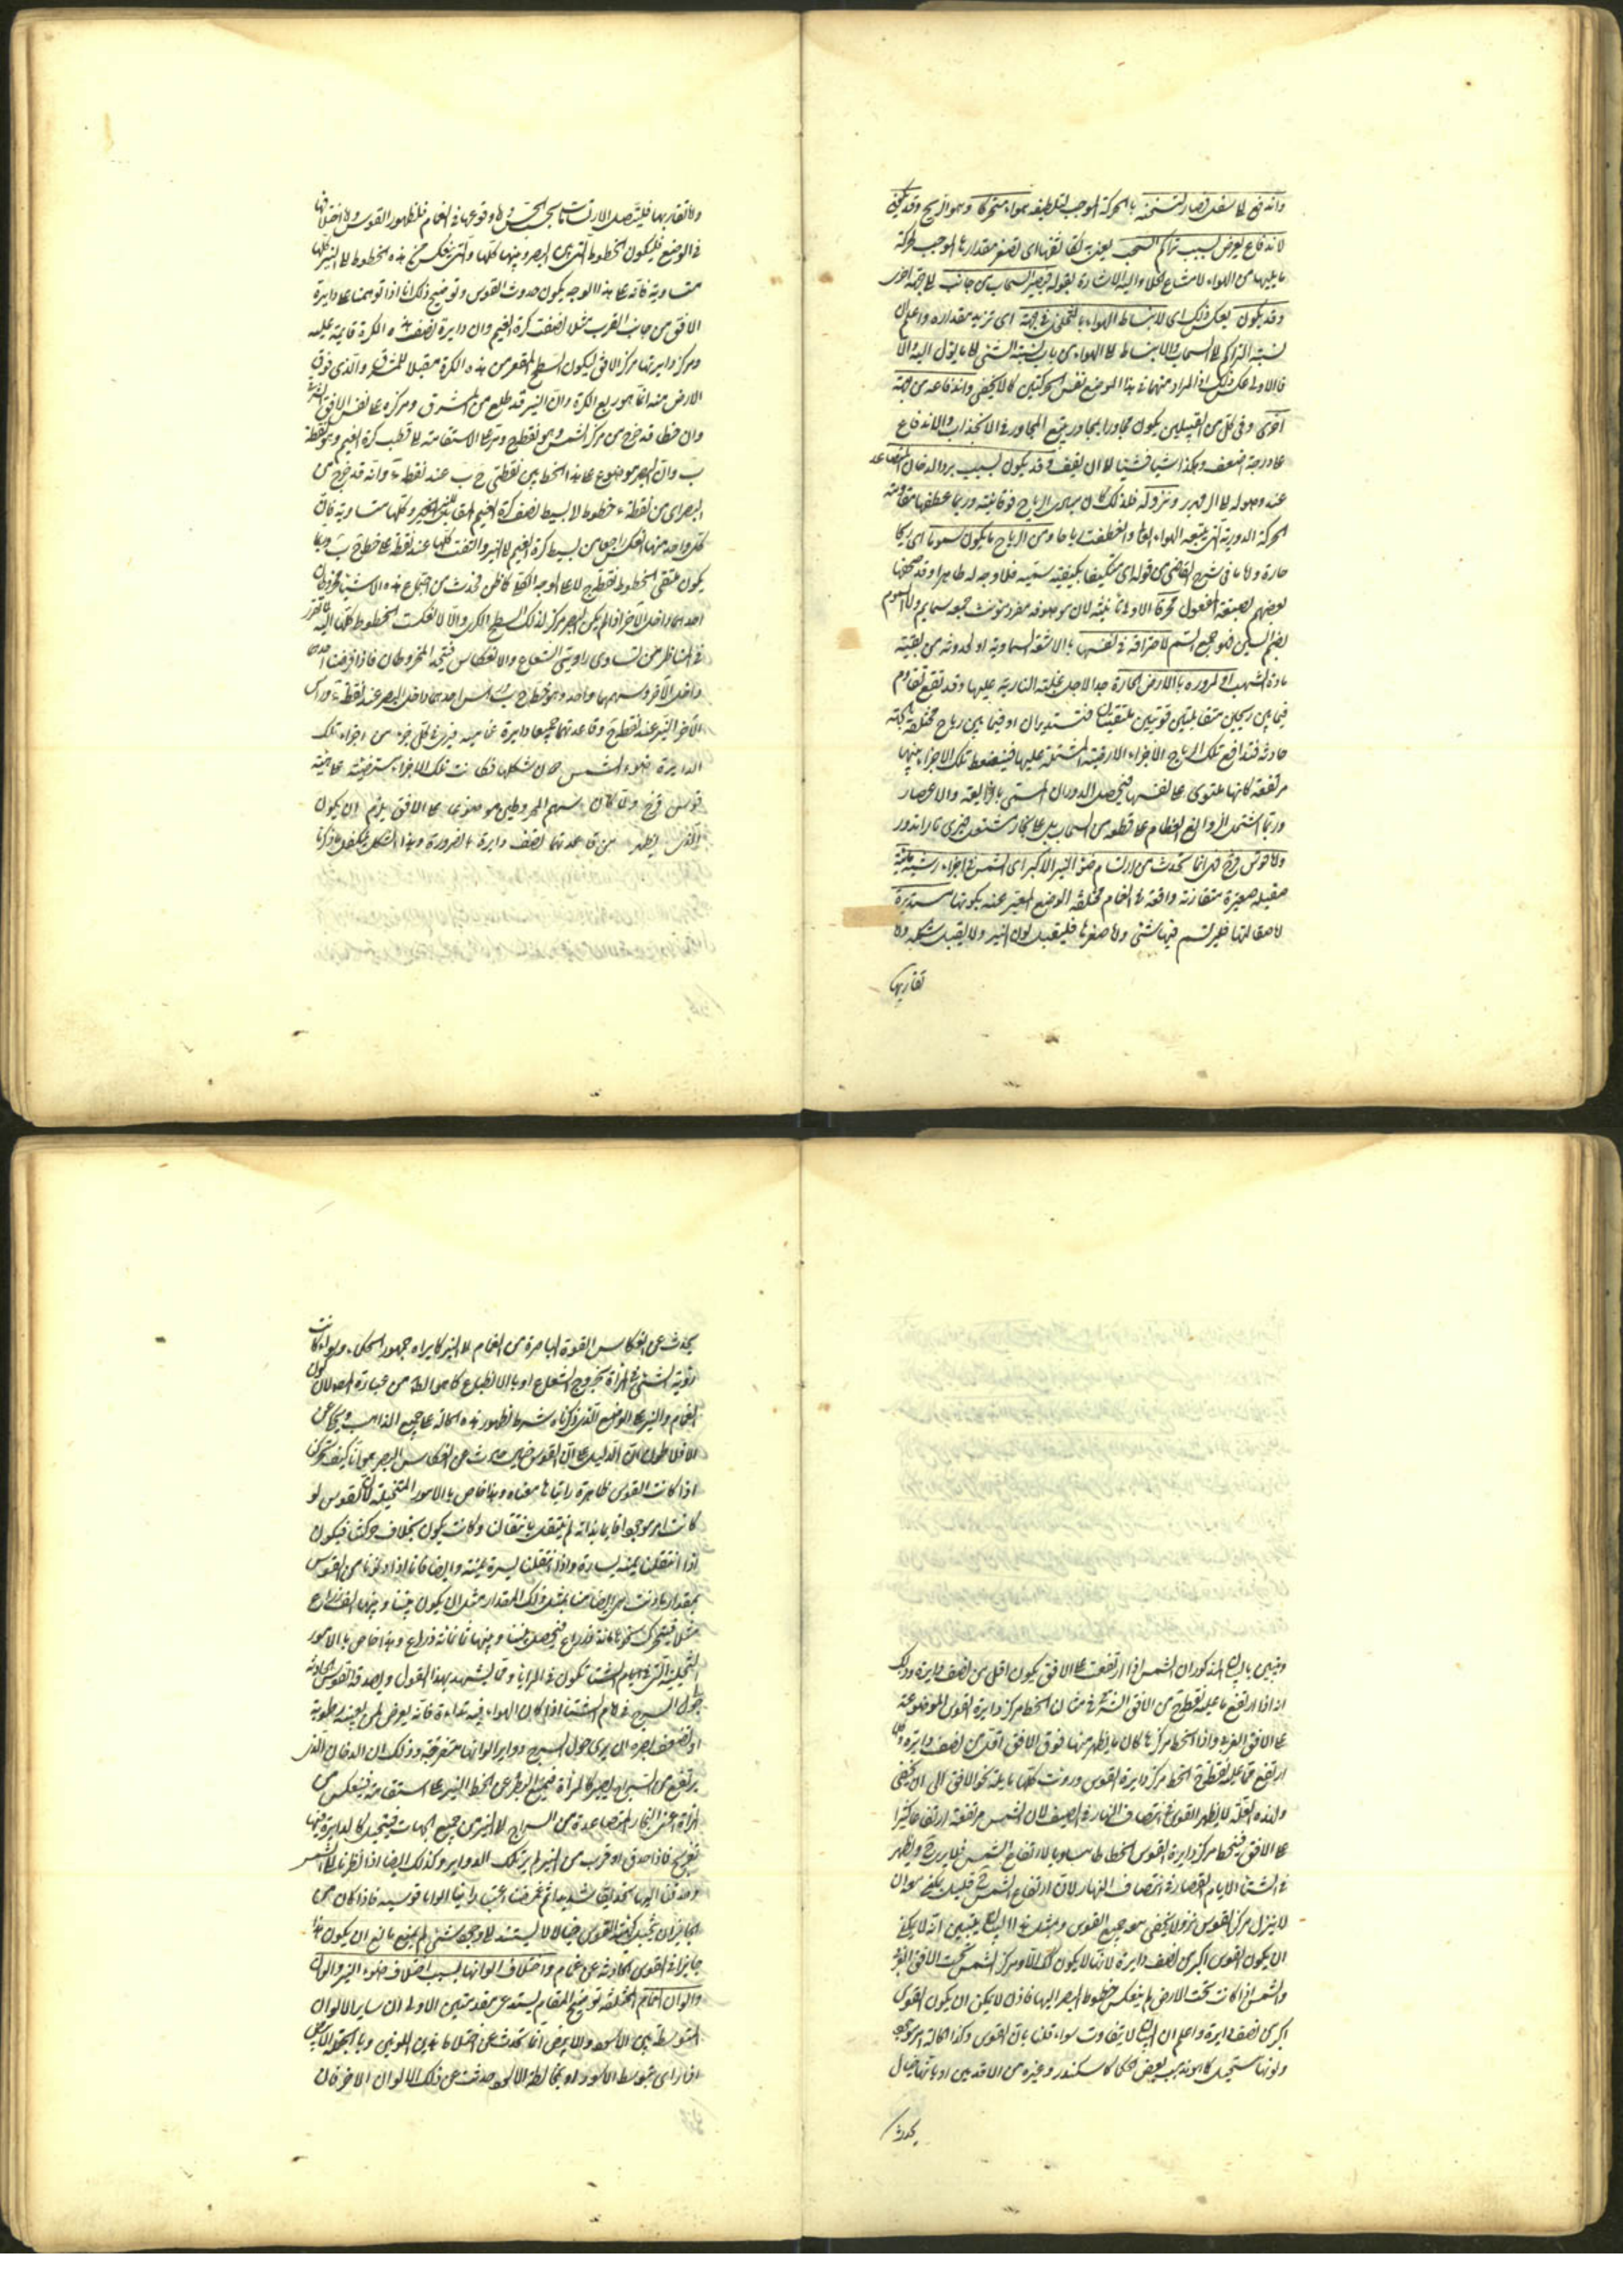 واندفع الى اسفل فصار لتسخنه بالحركة الموجب لتلطيفه هواء متحركا وهو الريح وقد يكون
لاندفاع يعرض بسبب تراكم السحب يعني به تكاثفها اى لصغر مقدارها الموجب لحركة
ما يليها من الهواء لامتناع الخلاء واليه الاشارة بقوله فيصير السحاب من جانب الى جهة اخرى
وقد يكون بعكس ذلك اى لانبساط الهواء بالتخلخل فى جهة اى تزيد مقداره واعلم ان
نسبة التراكم الى السحاب والانبساط الى الهواء من باب نسبة الشئ الى ما يؤل اليه والا
فالاولى عكس ذلك اذ المراد منهما فى هذا الموضع نفس الحركتين كما لا يخفى واندفاعه من جهة
اخرى وفى كل من القبيلين يكون مجاورا يجاور يتبع المجاور فى الانجذاب والاندفاع
على درجة اضعف وهكذا شيئا فشيئا الى ان يقف وقد يكون بسبب برد الدخان المتصاعد
عند وصوله الى الزمهرير ونزوله فلذلك كان مبادى الرياح فوقانية وربما عطفها مقاومة
الحركة الدورية التى يتبعه الهواء العالى وانعطفت رياحا ومن الرياح ما يكون سموما اى ريحا
حارة
بعضهم بصيغة المفعول محرقا الاولى تأنيثه لان موصوفه مفرد مؤنث جمعه سمايم واما السموم
بضم السين فهو جمع السم لاحتراقه فى نفسها بالاشعة السماوية او لحدوثه من بقية
مادة الشهب او لمروره بالارض الحارة جدا لاجل غلبة النارية عليها وقد تقع تقاوم
فيما بين ريحين متقابلتين قويتين تلتقيان فتستديران او فيما بين رياح مختلفة الجهة
حادثة فتدافع تلك الرياح الاجزاء الارضية المشتملة عليها فينضغط تلك الاجزاء بينها
مرتفعة كانها تلتوى على نفسها فيحصل الدوران المسمى بالزوابعة والاعصار
وربما اشتمل الزوابع العظام على قطعة من السحاب بل على بخار مشتعل فيرى نارا تدور
واما قوس قزح فهى انما تحدث من ارتسام ضوء النير الاكبر اى الشمس فى اجزاء رشية مائية
صقيلة صغيرة متقاربة واقعة فى الغمام مختلفة الوضع المعبر عنه بكونها مستديرة
اما صقالتها فليرتسم فيها شئ واما صغرها فليقبل لون النير ولا يقبل شكله واما
تقاربها
واما تقاربها فليتصل الارتسامات بحسب الحس واما وقوعها فى الغمام فلظهور القوس واما اختلافها
فى الوضع فليكون الخطوط التى بين البصر وبينها كلها والتى ينعكس من هذه الخطوط الى النير كلها
متساوية فانه على هذا الوجه يكون حدوث القوس وتوضيح ذلك انا اذا توهمنا على دايرة
الافق من جانب الغرب مثلا نصف كرة الغيم وان دايرة نصف هذه الكرة قايمة عليه
ومركز دايرتها مركز الافق ليكون السطح المقعر من هذه الكرة مقبلا للمشرق والذى فوق
الارض منه انما هو ربع الكرة وان النير قد طلع من المشرق ومركزه على نفس الافق الشرقى
وان خطا قد خرج من مركز الشمس وهو نقطة ح ومر على الاستقامة الى قطب كرة الغيم وهو نقطة
ب وان البصر موضوع على هذا الخط بين نقطتى ح ب عند نقطة ء وانه قد خرج من
البصر اى من نقطة ء خطوط الى بسيط نصف كرة الغيم المقابل للنير وكلها متساوية فان
كل واحد منها انعكس راجعا من بسيط كرة الغيم الى النير والتقت كلها عند نقطة ح على خط ح ب
يكون ملتقى الخطوط نقطة ح لا على الوجه الكلى فحدث من اجتماع هذه الاشياء مخروطان
احدهما داخل الآخر اذ لم يكن البصر مركز لذلك السطح الكرى والا لانعكست الخطوط كلها اليه لما تقرر
فى المناظر من تساوى زاويتى الشعاع والانعكاس فيتحد المخروطان فاذا فرضت احدهما
داخل الآخر وسهمهما واحد وهو خط ح ب ورأس احدهما داخل البصر عند نقطة ء ورأس
الآخر النير عند نقطة ح وقاعدتهما جميعا دايرة غمامية فيرى فى كل جزء من اجزاء تلك
الدايرة ضوء الشمس دون شكلها فكانت تلك الاجزاء مترضية على هيئة
قوس قزح ولما كان سهم المخروطين موضوعا على الافق يلزم ان يكون
الذى يظهر من قاعدتهما نصف دايرة بالضرورة وهذا الشكل يتكفل ما ذكرنا
وتبين بالبيان المذكور ان الشمس اذا ارتفعت على الافق يكون اقل من نصف دايرة وذلك
انه اذا ارتفع ما عليه نقطة ح من الافق الشرقى فى مثالنا انحط مركز دايرة القوس الموضوعة
على الافق الغربى واذا انحط مركزها كان ما يظهر منها فوق الافق اقل من نصف دايرة وكلما
ارتفع ما عليه نقطة ح انحط مركز دايرة القوس ودونت كلها مايلة نحو الافق الى ان يخفى
ولهذه العلة لا يظهر القوس فى انتصاف النهار فى الصيف لان الشمس مرتفعة ارتفاعا كثيرا
على الافق فينحط مركز دايرة القوس انحطاطا مساويا لارتفاع الشمس فلا يرى ح ويظهر
فى الشتاء الايام القصار فى انتصاف النهار لان ارتفاع الشمس ح قليل يكفى هو ان
لا ينزل مركز القوس نزولا يخفى معه جميع القوس وبمثل هذا البيان يتبين انه لا يمكن
ان يكون القوس اكبر من نصف دايرة لانها لا يكون كذلك الا ومركز الشمس تحت الافق الغربى
والشمس اذا كانت تحت الارض لم ينعكس خطوط البصر اليها فاذن لا يمكن ان يكون القوس
اكبر من نصف دايرة واعلم ان البيان لا يتفاوت سواء قلنا بان القوس وكذا الهالة امر موجود
ولونها مستحيل كما هو مذهب بعض الحكماء كاسكندر وغيره من الاقدمين او بانها خيال
يحدث
يحدث عن انعكاس القوة الباصرة من الغمام الى النير كما يراه جمهور الحكماء وسواء كانت
رؤية الشئ فى المرآة بخروج الشعاع او بالانطباع كما هو الظاهر من عبارة المص لان كون
الغمام والنير على الوضع الذى ذكرناه شرط لظهور هذه الحالة على جميع المذاهب ويحكى عن
افلاطون ان الدليل على ان القوس خيال حادث عن انعكاس البصر هو انا كيف تحركنا
اذا كانت القوس ظاهرة رايناها معناه وهذا خاص بالامور المتخيلة لان القوس لو
كانت امر موجودا قايما بذاته لم ينتقل بانتقالنا وكانت يكون بخلاف حركتنا فيكون
اذا انتقلنا يمنة يسارة واذا انتقلنا يسرة يمنة وايضا فانا اذا دنونا من القوس
بمقدار ما دنت هى ايضا منا بمثل ذلك المقدار مثل ان يكون بيننا وبينها الف ذراع
مثلا فيتحرك نحوها مائة ذراع فيحصل بيننا وبينها ثمانمائة ذراع وهذا خاص بالامور
المتخيلة التى فى ايام الشتاء تكون فى المرايا ومما يشهد بهذا القول ويصدقه القوس الحادثة
حول السرج فى ايام الشتاء اذا كان الهواء فيه نداوة فانه يعرض لمن بعينه رطوبة
او لضعف بصره ان يرى حول السراج دواير الوانها متفرقة وذلك ان الدخان الذى
يرتفع من السراج يصير كالمرآة فيمنع البصر عن الخط النير على استقامة فينعكس من
المرآة اعنى البخار المتصاعدة من السراج الى النير من جميع الجهات فيتخيل كالدايرة فيها
تقزيح فاذا حدق او قرب من النير لم ير تلك الدواير وكذلك ايضا اذا نظرنا الى الشمس
وحدقنا اليها تحديقا شديدا ثم غمضنا اعيننا راينا الوانا قوسية فاذا كان من
الجايز ان يتخيل كهيئة القوس خيالا لا يستند الى وجود شئ لم يمنع مانع ان يكون هذا
جايزا فى القوس الحادثة عن غمام واختلاف الوانها بسبب اختلاف ضوء النير والوان
والوان الغمام المختلفة توضيح المقام يستدعى مقدمتين الاولى ان ساير الالوان
المتوسطة بين الاسود والابيض انما تحدث عن اختلاط هذين اللونين وبالجملة الابيض
اذا راى بتوسط الاسود او بمخالطة الاسود حدثت عن ذلك الالوان الاخر فان